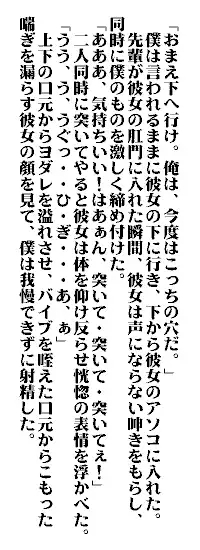 「おまえ下へ行け。俺は、今度はこっちの穴だ。」
　僕は言われるままに彼女の下に行き、下から彼女のアソコに入れた。
　先輩が彼女の肛門に入れた瞬間、彼女は声にならない呻きをもらし、
同時に僕のものを激しく締め付けた。
「あああ、気持ちいい！はあぁん、突いて・突いて・突いてぇ！」
　二人同時に突いてやると彼女は体を仰け反らせ恍惚の表情を浮かべた。
「うう、う、うぐっ・・ひ・ぎ・・・あ、ぁ」
　上下の口元からヨダレを溢れさせ、バイブを咥えた口元からこもった
喘ぎを漏らす彼女の顔を見て、僕は我慢できずに射精した。